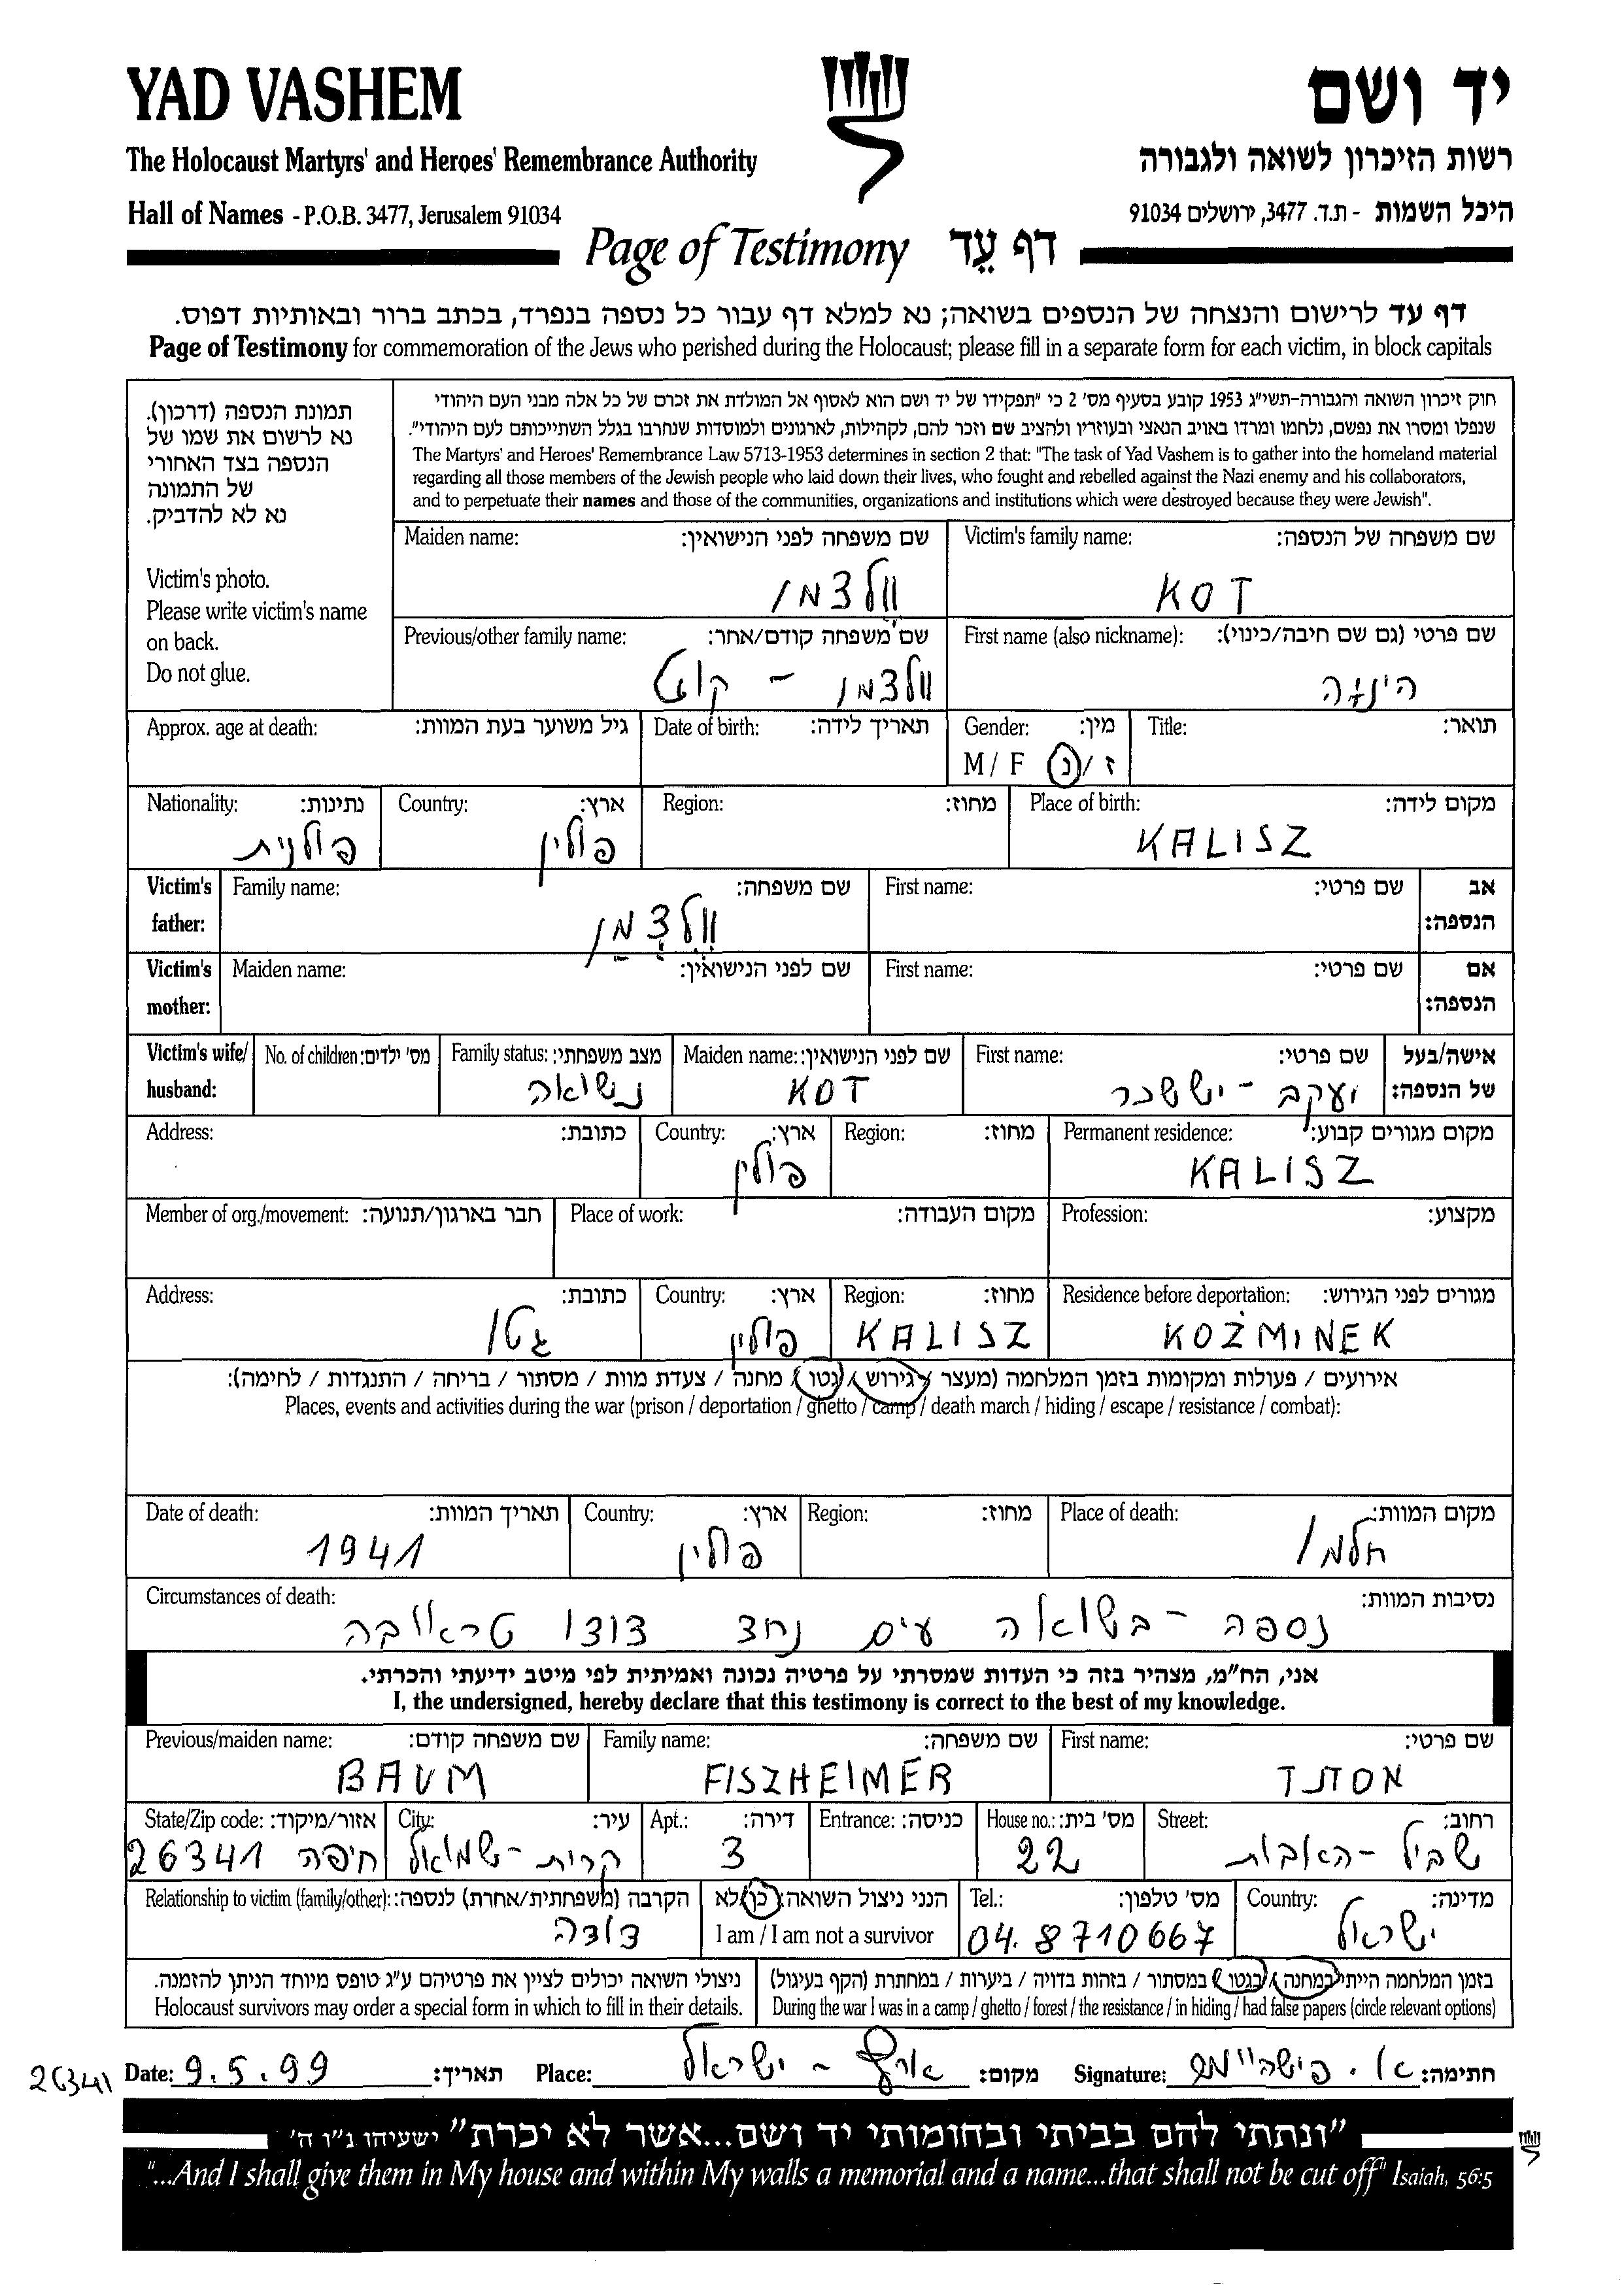 YAD VASHEM
יד ושם
The Holocaust Martyrs' and Heroes' Remembrance Authority
רשות הזיכרון לשואה ולגבורה
Hall of Names - P.O.B. 3477, Jerusalem 91034
היכל השמות - ת.ד. 3477, ירושלים 91034
Page of Testimony דף עֵד
דף עד לרישום והנצחה של הנספים בשואה; נא למלא דף עבור כל נספה בנפרד, בכתב ברור ובאותיות דפוס.
Page of Testimony for commemoration of the Jews who perished during the Holocaust; please fill in a separate form for each victim, in block capitals
תמונת הנספה (דרכון).
נא לרשום את שמו של
הנספה בצד האחורי
של התמונה
נא לא להדביק.
Victim's photo.
Please write victim's name
on back.
Do not glue.
חוק זיכרון השואה והגבורה-תשי"ג 1953 קובע בסעיף מס' 2 כי "תפקידו של יד ושם הוא לאסוף אל המולדת את זכרם של כל אלה מבני העם היהודי
שנפלו ומסרו את נפשם, נלחמו ומרדו באויב הנאצי ובעוזריו ולהציב שם וזכר להם, לקהילות, לארגונים ולמוסדות שנחרבו בגלל השתייכותם לעם היהודי".
The Martyrs' and Heroes' Remembrance Law 5713-1953 determines in section 2 that: "The task of Yad Vashem is to gather into the homeland material
regarding all those members of the Jewish people who laid down their lives, who fought and rebelled against the Nazi enemy and his collaborators,
and to perpetuate their names and those of the communities, organizations and institutions which were destroyed because they were Jewish".
Maiden name: שם משפחה לפני הנישואין: Victim's family name: שם משפחה של הנספה:
וולצמן KOT
Previous/other family name: שם משפחה קודם/אחר: First name (also nickname): שם פרטי (גם שם חיבה/כינוי):
וולצמן - קוט הינדה
Approx. age at death: גיל משוער בעת המוות: Date of birth: תאריך לידה: Gender: מין: Title: תואר:
M / F ז / נ
Nationality: נתינות: Country: ארץ: Region: מחוז: Place of birth: מקום לידה:
פולנית פולין KALISZ
Victim's father: Family name: שם משפחה: First name: שם פרטי: אב הנספה:
וולצמן
Victim's mother: Maiden name: שם לפני הנישואין: First name: שם פרטי: אם הנספה:
Victim's wife/ husband: No. of children: מס' ילדים: Family status: מצב משפחתי: Maiden name: שם לפני הנישואין: First name: שם פרטי: אישה/בעל של הנספה:
נשואה KOT יעקב - יששכר
Address: כתובת: Country: ארץ: Region: מחוז: Permanent residence: מקום מגורים קבוע:
פולין KALISZ
Member of org./movement: חבר בארגון/תנועה: Place of work: מקום העבודה: Profession: מקצוע:
Address: כתובת: Country: ארץ: Region: מחוז: Residence before deportation: מגורים לפני הגירוש:
גטו פולין KALISZ KOŻMINEK
אירועים / פעולות ומקומות בזמן המלחמה (מעצר / גירוש / גטו / מחנה / צעדת מוות / מסתור / בריחה / התנגדות / לחימה):
Places, events and activities during the war (prison / deportation / ghetto / camp / death march / hiding / escape / resistance / combat):
Date of death: תאריך המוות: Country: ארץ: Region: מחוז: Place of death: מקום המוות:
1941 פולין חלמנו
Circumstances of death: נסיבות המוות:
נספה - בשואה עים נחד
אני, הח"מ, מצהיר בזה כי העדות שמסרתי על פרטיה נכונה ואמיתית לפי מיטב ידיעתי והכרתי.
I, the undersigned, hereby declare that this testimony is correct to the best of my knowledge.
Previous/maiden name: שם משפחה קודם: Family name: שם משפחה: First name: שם פרטי:
BAUM FISZHEIMER אסתר
State/Zip code: אזור/מיקוד: City: עיר: Apt.: דירה: Entrance: כניסה: House no.: מס' בית: Street: רחוב:
חיפה 26341 קרית - שמואל 3 22 שביל - האבות
Relationship to victim (family/other): הקרבה (משפחתית/אחרת) לנספה: הנני ניצול השואה: כן/לא Tel.: מס' טלפון: Country: מדינה:
דודה I am / I am not a survivor 04. 8710667 ישראל
ניצולי השואה יכולים לציין את פרטיהם ע"ג טופס מיוחד הניתן להזמנה. בזמן המלחמה הייתי במחנה / בגטו / במסתור / בזהות בדויה / ביערות / במחתרת (הקף בעיגול)
Holocaust survivors may order a special form in which to fill in their details. During the war I was in a camp / ghetto / forest / the resistance / in hiding / had false papers (circle relevant options)
26341 Date: 9.5.99 תאריך: Place: ארץ - ישראל מקום: Signature: חתימה:
"ונתתי להם בביתי ובחומותי יד ושם...אשר לא יכרת" ישעיהו נ"ו ה'
"...And I shall give them in My house and within My walls a memorial and a name...that shall not be cut off" Isaiah, 56:5